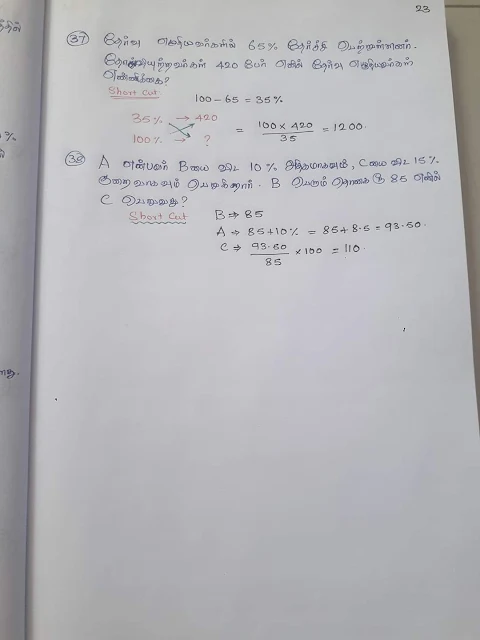 23
37 தேர்வு எழுதியவர்களில் 65% தேர்ச்சி பெற்றுள்ளனர்.
தோல்வியுற்றவர்கள் 420 பேர் எனில் தேர்வு எழுதியவர்கள்
எண்ணிக்கை?
Short Cut
100 - 65 = 35%
35% → 420
100% → ? = 100 × 420 / 35 = 1200.
38 A என்பவர் B யை விட 10% அதிகமாகவும், C யை விட 15%
குறைவாகவும் பெறுகிறார். B பெறும் தொகை ரூ 85 எனில்
C பெறுவது?
Short Cut
B ⇒ 85
A ⇒ 85 + 10% = 85 + 8.5 = 93.50.
C ⇒ 93.50 / 85 × 100 = 110.